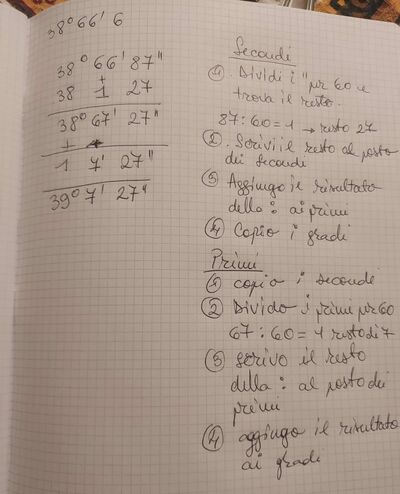 38° 66' 6
38° 66' 87"
+
38 1 27
38° 67' 27"
1 7' 27"
39° 7' 27"
Secondi
① . Dividi i " per 60 e
trova il resto.
87 : 60 = 1 → resto 27
② . Scrivi il resto al posto
dei secondi
③ Aggiungo il risultato
della : ai primi
④ Copio i gradi
Primi
① copio i secondi
② Divido i primi per 60
67 : 60 = 1 resto di 7
③ scrivo il resto
della : al posto dei
primi
④ aggiungo il risultato
ai gradi